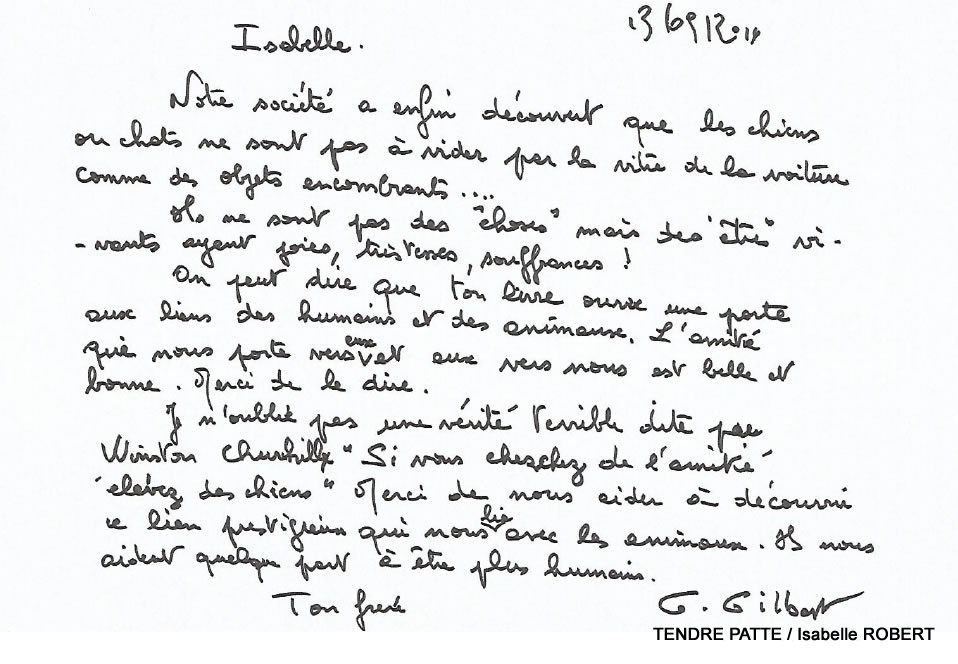 Isabelle.
Notre société a enfin découvert que les chiens
ou chats ne sont pas à vider par la vitre de la voiture
comme des objets encombrants....
Ils ne sont pas des "choses" mais des "êtres" vi-
-vants ayant joies, tristesses, souffrances !
On peut dire que ton livre ouvre une porte
aux liens des humains et des animaux. L'amitié
qui nous porte vers eux et eux vers nous est belle et
bonne. Merci de le dire.
Je n'oublie pas une vérité terrible dite par
Winston Churchill "Si vous cherchez de l'amitié
élevez des chiens" Merci de nous aider à découvrir
ce lien prestigieux qui nous lie avec les animaux. Ils nous
aident quelque part à être plus humains.
Ton frère
G. Gilbert
TENDRE PATTE / Isabelle ROBERT